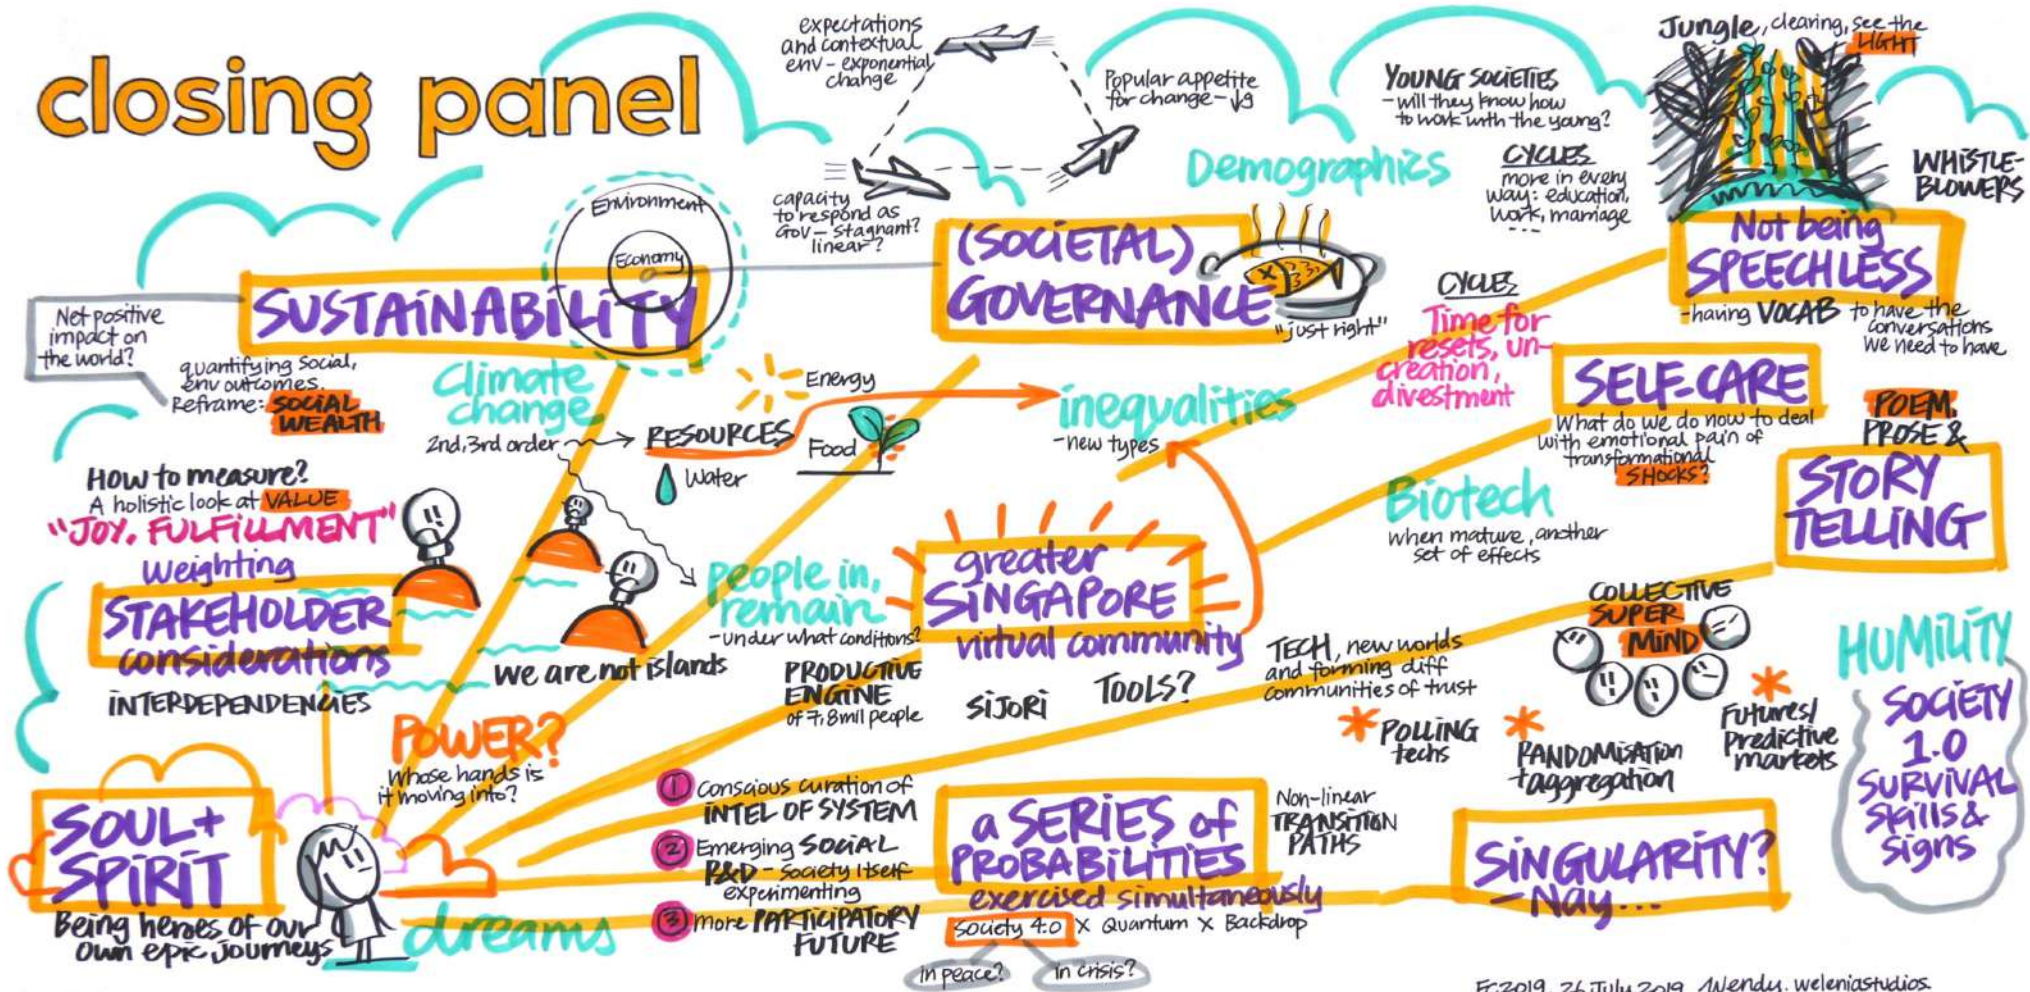 closing panel
expectations
and contextual
env - exponential
change
Popular appetite
for change -
capacity
to respond as
Gov - stagnant?
linear?
YOUNG SOCIETIES
- will they know how
to work with the young?
Demographics
CYCLES
more in every
way: education,
work, marriage
...
Jungle, clearing, see the
LIGHT
WHISTLE-
BLOWERS
Not being
SPEECHLESS
- having VOCAB to have the
conversations
we need to have
Environment
Economy
SUSTAINABILITY
Net positive
impact on
the world?
quantifying social,
env outcomes.
Reframe: SOCIAL
WEALTH
(SOCIETAL)
GOVERNANCE
"just right"
CYCLES
Time for
resets, un-
creation,
divestment
SELF-CARE
What do we do now to deal
with emotional pain of
transformational
SHOCKS?
POEM,
PROSE &
STORY
TELLING
Climate
change
2nd, 3rd order
RESOURCES
Energy
Food
Water
inequalities
- new types
HOW to measure?
A holistic look at VALUE
"JOY, FULFILLMENT"
Weighting
STAKEHOLDER
considerations
INTERDEPENDENCIES
we are not islands
people in,
remain
- under what conditions?
greater
SINGAPORE
virtual community
PRODUCTIVE
ENGINE
of 7,8mil people
SIJORI
TOOLS?
Biotech
when mature, another
set of effects
TECH, new worlds
and forming diff
communities of trust
COLLECTIVE
SUPER
MIND
POLLING
techs
RANDOMISATION
+ aggregation
Futures/
Predictive
markets
HUMILITY
SOCIETY
1.0
SURVIVAL
skills &
signs
POWER?
Whose hands is
it moving into?
SOUL +
SPIRIT
Being heroes of our
own epic journeys
dreams
1 Conscious curation of
INTEL OF SYSTEM
2 Emerging SOCIAL
R&D - Society itself
experimenting
3 more PARTICIPATORY
FUTURE
a SERIES of
PROBABILITIES
exercised simultaneously
Society 4.0 x Quantum x Backdrop
in peace?
in crisis?
Non-linear
TRANSITION
PATHS
SINGULARITY?
- Nay...
FC2019. 26 July 2019. Wendy. weleniastudios.